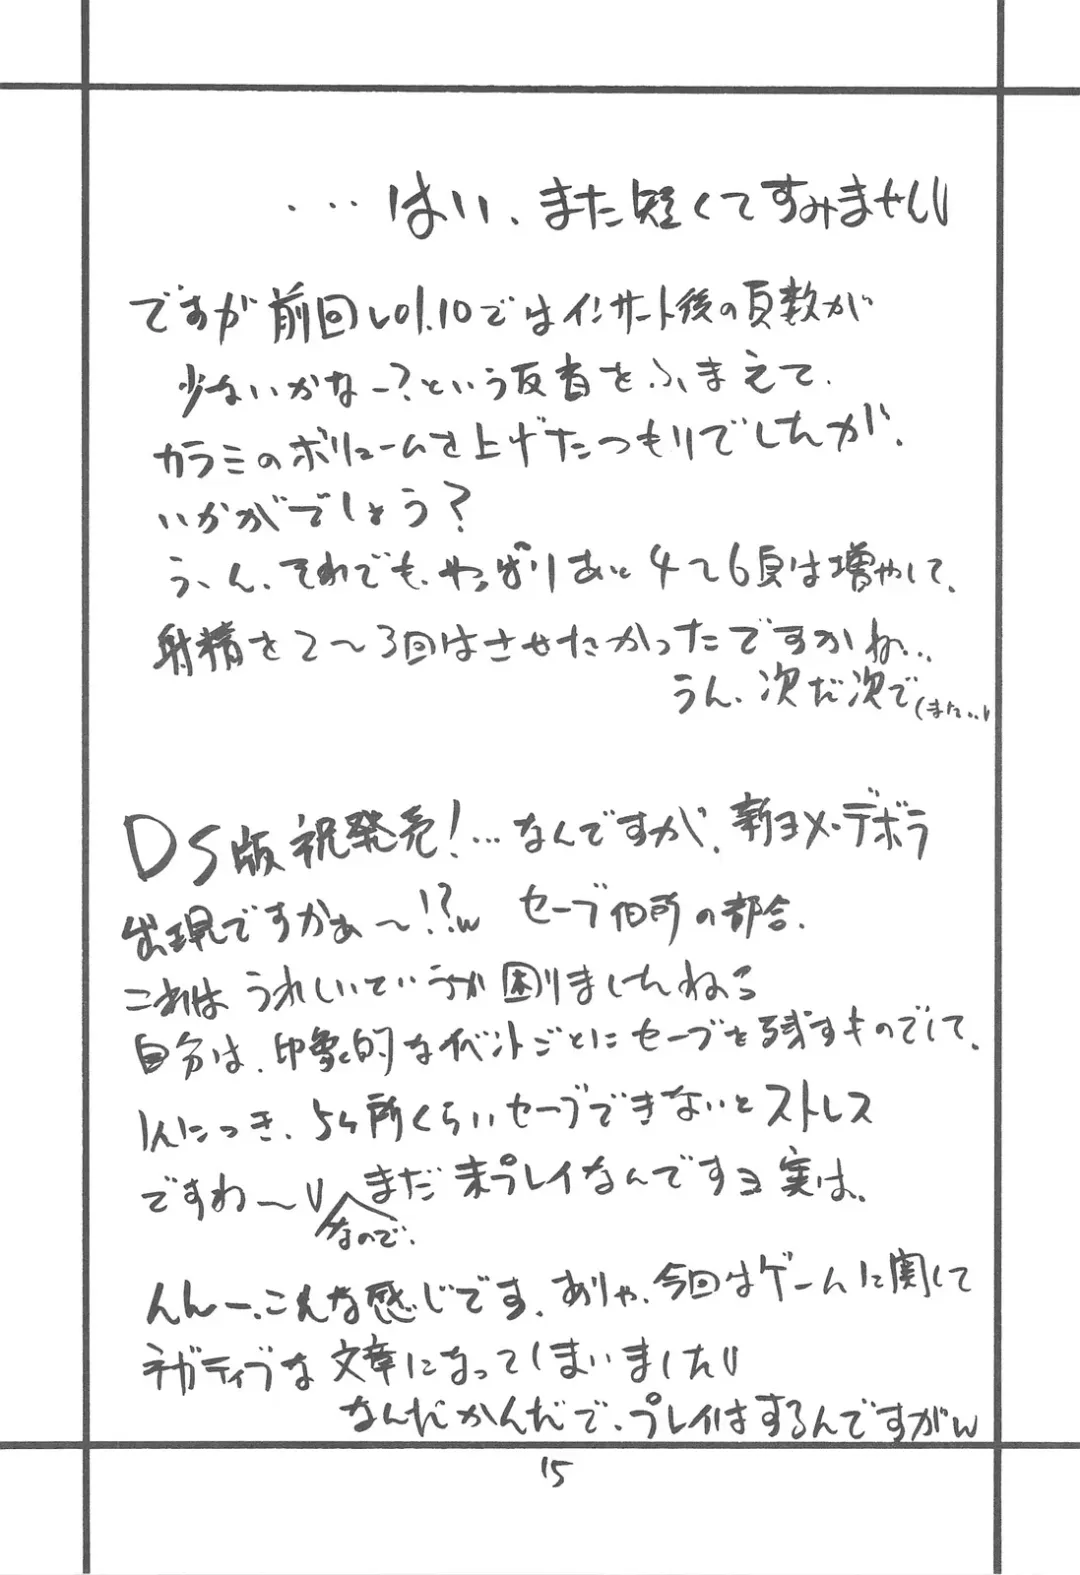 ・・・はい、また短くてすみません
ですが前回vol.10ではインサート後の頁数が
少ないかなー?という反省をふまえて、
カラミのボリュームを上げたつもりでしたが、
いかがでしょう?
う、ん、それでも、やっぱりあと4〜6頁は増やして、
射精を2〜3回はさせたかったですかね…
うん、次だ次で(また…)
DS版祝発売!…なんですが、新ヨメ・デボラ
出現ですかぁ〜!?w セーブ個所の都合、
これは うれしいていうか困りましたねぇ
自分は、印象的なイベントごとにセーブを残すものでして、
1人につき、5ヶ所くらいセーブできないとストレス
ですわ〜 まだ未プレイなんですョ実は、
なので、
んんー、こんな感じです、ありゃ、今回はゲームに関して
ネガティブな文章になってしまいました
なんだかんだで、プレイはするんですがw
15